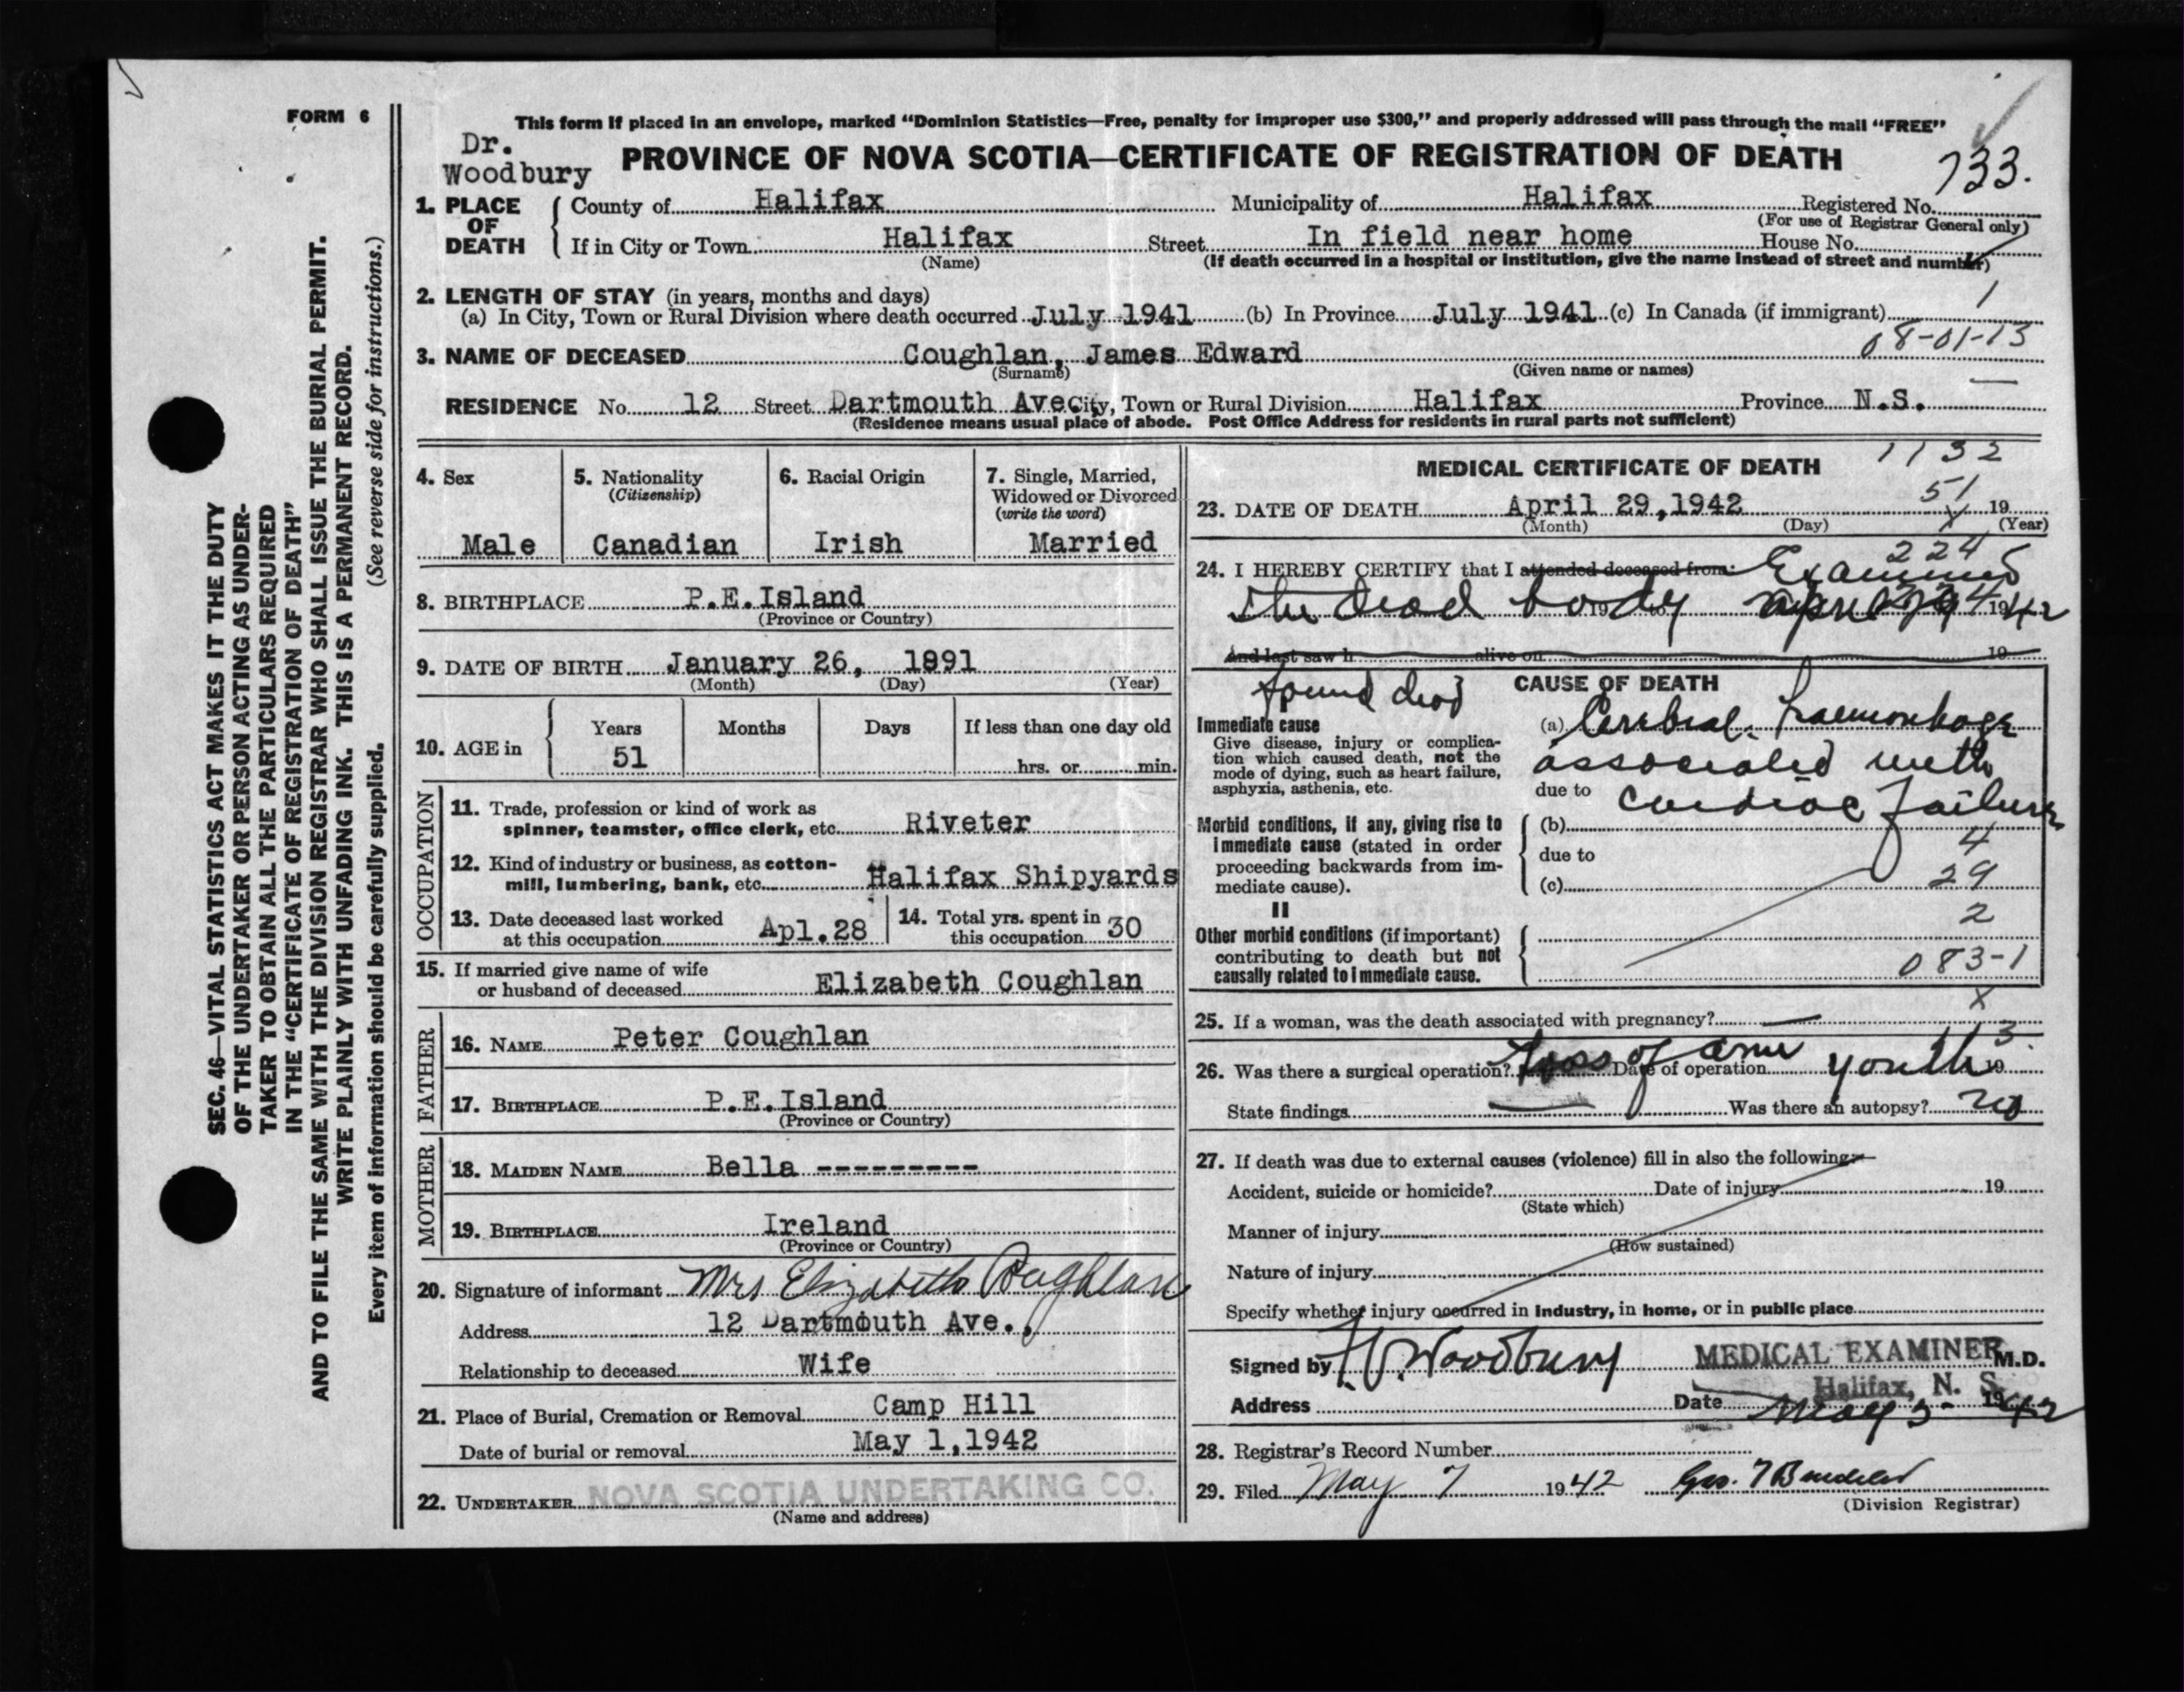 FORM 6
This form if placed in an envelope, marked "Dominion Statistics—Free, penalty for improper use $300," and properly addressed will pass through the mail "FREE"
Dr.
Woodbury
PROVINCE OF NOVA SCOTIA—CERTIFICATE OF REGISTRATION OF DEATH
733.
1. PLACE OF DEATH
County of Halifax Municipality of Halifax Registered No.
(For use of Registrar General only)
If in City or Town Halifax Street In field near home House No.
(Name) (If death occurred in a hospital or institution, give the name instead of street and number)
2. LENGTH OF STAY (in years, months and days)
(a) In City, Town or Rural Division where death occurred July 1941 (b) In Province July 1941 (c) In Canada (if immigrant) 1
08-01-13
3. NAME OF DECEASED Coughlan, James Edward
(Surname) (Given name or names)
RESIDENCE No. 12 Street Dartmouth Ave City, Town or Rural Division Halifax Province N.S.
(Residence means usual place of abode. Post Office Address for residents in rural parts not sufficient)
4. Sex
Male
5. Nationality
(Citizenship)
Canadian
6. Racial Origin
Irish
7. Single, Married,
Widowed or Divorced
(write the word)
Married
8. BIRTHPLACE P.E.Island
(Province or Country)
9. DATE OF BIRTH January 26, 1891
(Month) (Day) (Year)
10. AGE in
Years Months Days If less than one day old
51 hrs. or min.
OCCUPATION
11. Trade, profession or kind of work as
spinner, teamster, office clerk, etc. Riveter
12. Kind of industry or business, as cotton-
mill, lumbering, bank, etc. Halifax Shipyards
13. Date deceased last worked
at this occupation Apl.28
14. Total yrs. spent in
this occupation 30
15. If married give name of wife
or husband of deceased Elizabeth Coughlan
FATHER
16. NAME Peter Coughlan
17. BIRTHPLACE P.E.Island
(Province or Country)
MOTHER
18. MAIDEN NAME Bella ---------
19. BIRTHPLACE Ireland
(Province or Country)
20. Signature of informant Mrs Elizabeth Coughlan
Address 12 Dartmouth Ave.,
Relationship to deceased Wife
21. Place of Burial, Cremation or Removal Camp Hill
Date of burial or removal May 1,1942
22. UNDERTAKER NOVA SCOTIA UNDERTAKING CO.
(Name and address)
MEDICAL CERTIFICATE OF DEATH
1132
51
23. DATE OF DEATH April 29,1942 19
(Month) (Day) (Year)
224
24. I HEREBY CERTIFY that I attended deceased from: Examined
the dead body 19 to April 29 1942
And last saw h alive on 19
found dead
CAUSE OF DEATH
Immediate cause
Give disease, injury or complica-
tion which caused death, not the
mode of dying, such as heart failure,
asphyxia, asthenia, etc.
(a) Cerebral haemorhage
associated with
due to cardiac failure
Morbid conditions, if any, giving rise to
immediate cause (stated in order
proceeding backwards from im-
mediate cause).
(b)
due to
(c)
4
29
2
II
Other morbid conditions (if important)
contributing to death but not
causally related to immediate cause.
083-1
x
25. If a woman, was the death associated with pregnancy? —
3.
26. Was there a surgical operation? Loss of arm Date of operation youth 19
State findings — Was there an autopsy? no
27. If death was due to external causes (violence) fill in also the following:—
Accident, suicide or homicide? Date of injury 19
(State which)
Manner of injury
(How sustained)
Nature of injury
Specify whether injury occurred in industry, in home, or in public place
Signed by Woodbury MEDICAL EXAMINER M.D.
Halifax, N. S.
Address Date May 5- 1942
28. Registrar's Record Number
29. Filed May 7 1942 Geo.
(Division Registrar)
SEC. 46—VITAL STATISTICS ACT MAKES IT THE DUTY
OF THE UNDERTAKER OR PERSON ACTING AS UNDER-
TAKER TO OBTAIN ALL THE PARTICULARS REQUIRED
IN THE "CERTIFICATE OF REGISTRATION OF DEATH"
AND TO FILE THE SAME WITH THE DIVISION REGISTRAR WHO SHALL ISSUE THE BURIAL PERMIT.
WRITE PLAINLY WITH UNFADING INK. THIS IS A PERMANENT RECORD.
Every item of information should be carefully supplied. (See reverse side for instructions.)